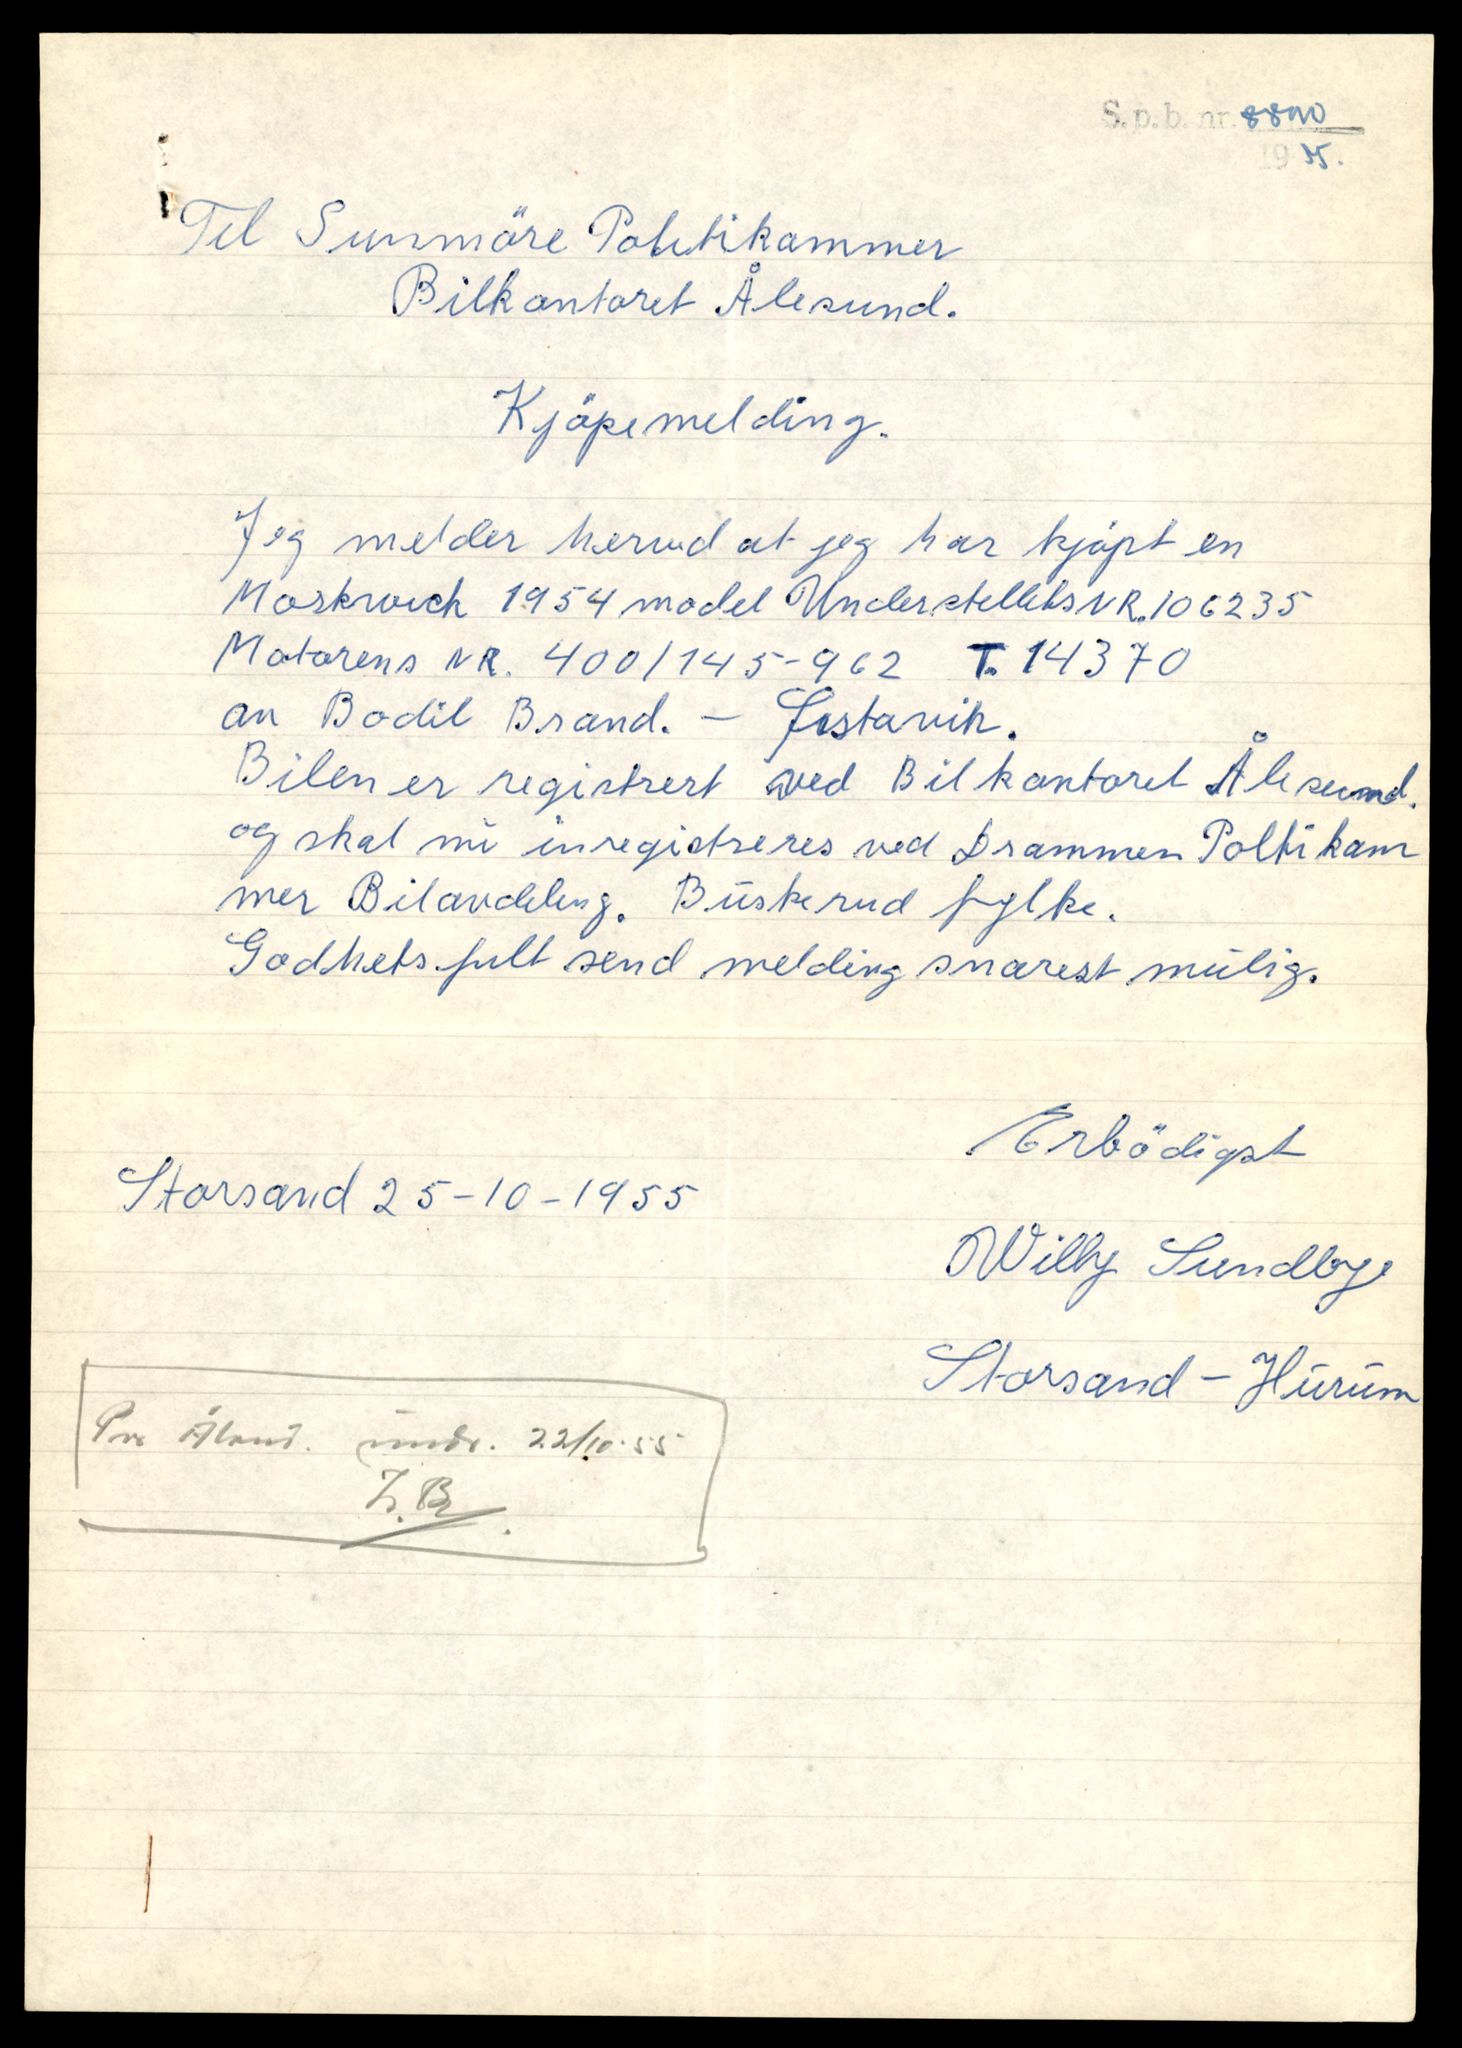 S.p.b. nr. 8800
1955.
Til Sunmöre Politikammer
Bilkontoret Ålesund.
Kjöpemelding.
Jeg melder herved at jeg har kjöpt en
Moskwich 1954 model Understellets NR. 106235
Motorens NR. 400/145-962 T. 14370
av Bodil Brand. -
Bilen er registrert ved Bilkontoret Ålesund.
og skal nü inregistreres ved Drammen Politikam
mer Bilavdeling. Büskerud fylke.
Godhetsfult send melding snarest mülig.
Erbödigst
Storsand 25-10-1955
Willy Sundbye
Storsand - Hürüm
undr. 22/10-55